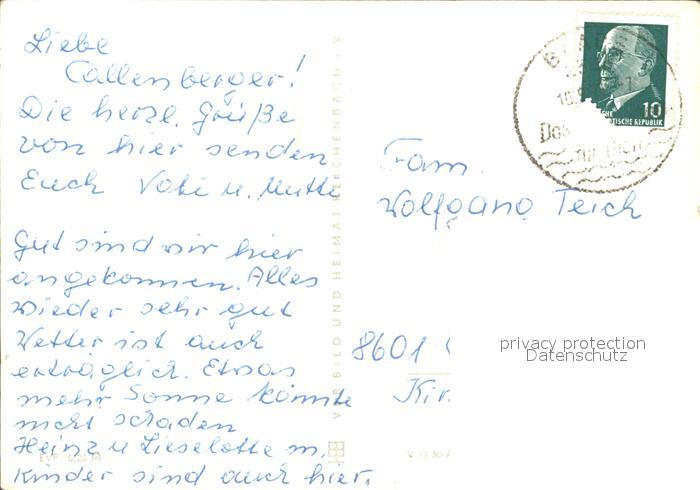 Liebe
Callenberger!
Die herzl. Grüße
von hier senden
Euch Vati u. Mutti
Gut sind wir hier
angekommen. Alles
wieder sehr gut
Wetter ist auch
erträglich. Etwas
mehr Sonne könnte
nicht schaden
Heinz u Lieselotte m.
Kinder sind auch hier.
VEB BILD UND HEIMAT REICHENBACH. V
Fam.
Wolfgang Teich
8601
Kir
10
TISCHE REPUBLIK
privacy protection
Datenschutz